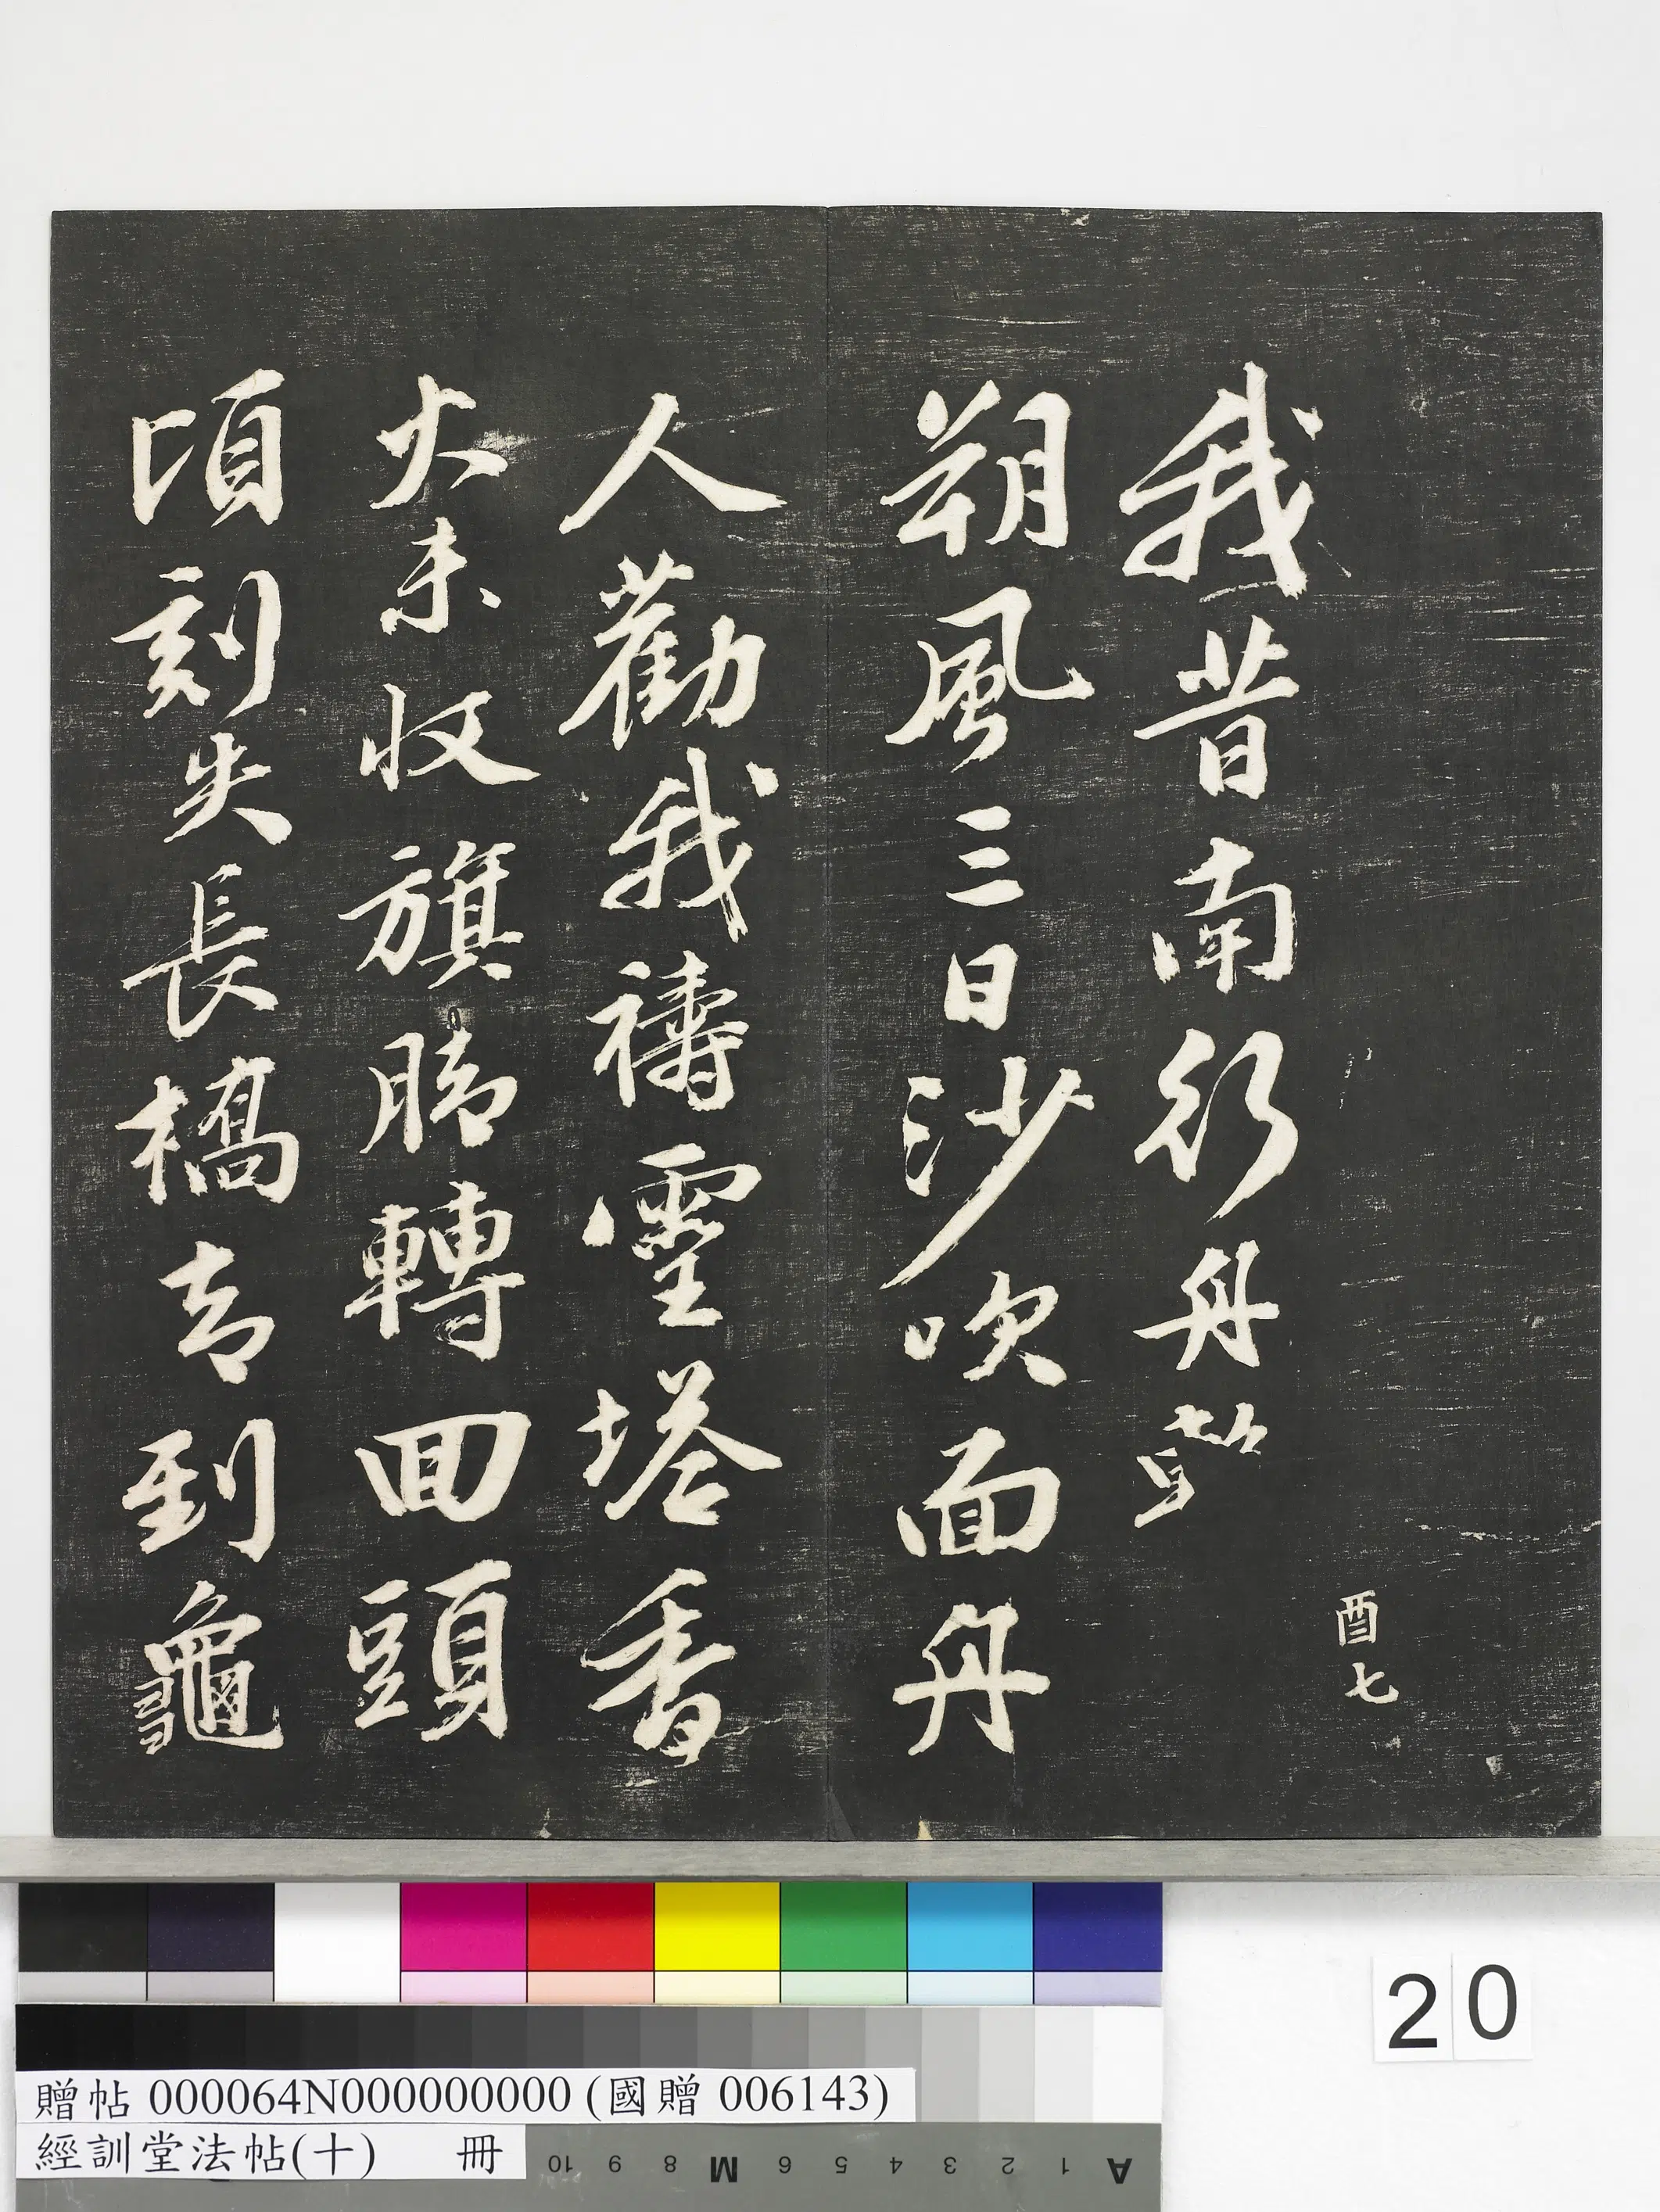 酉七
我昔南行舟
朔風三日沙吹面舟
人勸我禱靈塔香
火未收旗脚轉回頭
頃刻失長橋却到龜
20
贈帖 000064N000000000 (國贈 006143)
經訓堂法帖(十) 冊
10 9 8 M 6 5 4 3 2 1 A